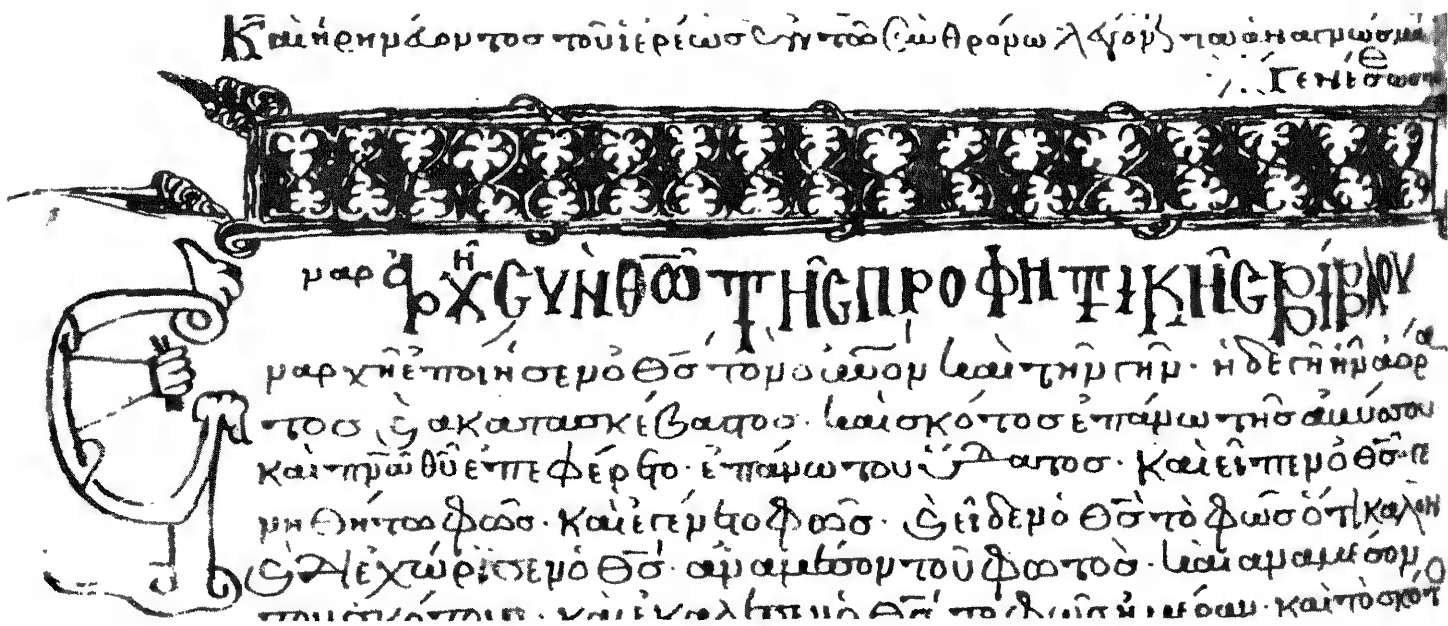 Καὶ τοῦ ἱερέως τῶ θρόνω
Γενέσεως
ἀρχὴ σὺν θῶ τῆς προφητικῆς βιβλίου
Ἐν ἀρχῆ ἐποίησεν ὁ θς τὸν οὐνον καὶ τὴν γῆν· ἡ δὲ γῆ ἦν ἀόρα
τος, καὶ ἀκατασκέβατος· καὶ σκότος ἐπάνω τῆς ἀβύσσου
καὶ πνα θυ ἐπεφέρετο· ἐπάνω τοῦ ὕδατος· Καὶ εἶπεν ὁ θς γε
νηθήτω φῶς· καὶ ἐγένετο φῶς· καὶ εἶδεν ὁ θς τὸ φῶς ὅτι καλὸν
καὶ διεχώρισεν ὁ θς· ἀναμέσον τοῦ φωτὸς· καὶ ἀναμέσον
τοῦ σκότους· καὶ ἐκάλεσεν ὁ θς τὸ φῶς ἡμέραν· καὶ τὸ σκότο